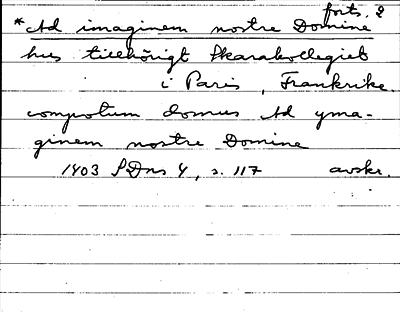 forts. 2
*Ad imaginem nostre Domine
hus tillhörigt Skarakollegiet
i Paris, Frankrike.
compotum domus Ad yma-
ginem nostre Domine
1403 SDns 4, s. 117 avskr.